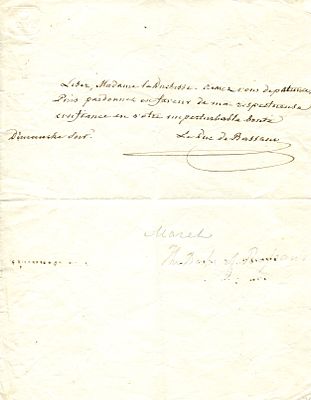 Lisez, Madame la Duchesse. armez vous de patience
Puis pardonnez en faveur de ma respectueuse
confiance en votre imperturbable bonté
Dimanche soir Le Duc de Bassano
Maret
The Duke of